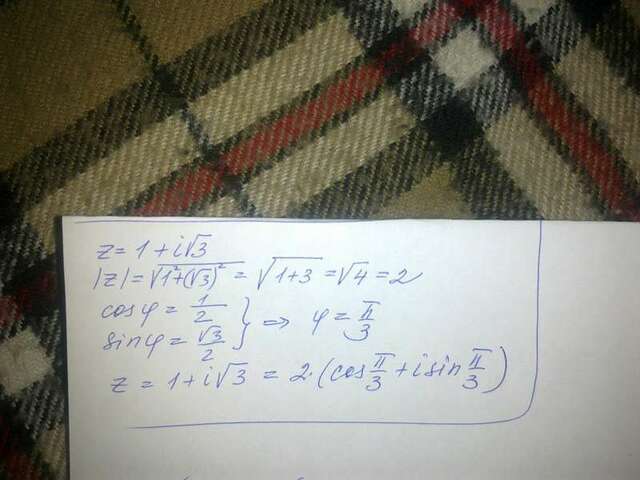 z = 1 + i√3
|z| = √1²+(√3)² = √1+3 = √4 = 2
cos φ = 1/2
sin φ = √3/2 } ⇒ φ = π/3
z = 1 + i√3 = 2·(cos π/3 + i sin π/3)